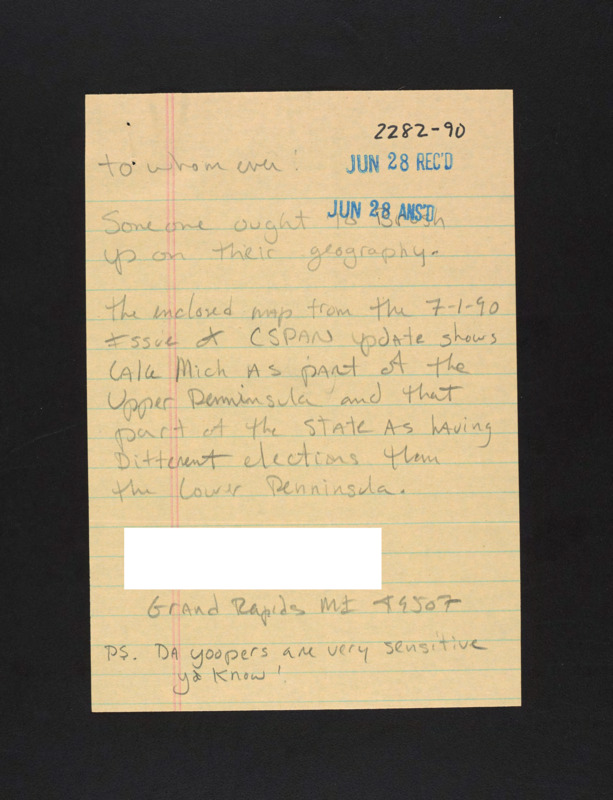 2282-90
to whom ever!
JUN 28 REC'D
JUN 28 ANS'D
Someone ought to Brush
up on their geography.
the enclosed map from the 7-1-90
Issue of CSPAN update shows
Lake Mich As part of the
Upper Penninsula and that
part of the STATE As having
Different elections then
the Lower Penninsula.
Grand Rapids MI 49507
PS. DA yoopers are very sensitive
ya Know!